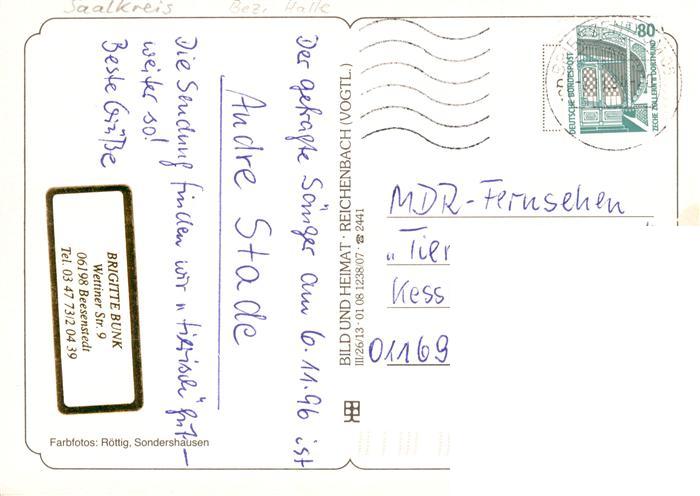 Saalkreis Bez. Halle
Der gefragte Sänger am 6.11.96 ist
Andre Stade
Die Sendung finden wir "tierisch" gut –
weiter so!
Beste Grüße
BRIGITTE BUNK
Wettiner Str. 9
06198 Beesenstedt
Tel. 03 47 73/2 04 39
Farbfotos: Röttig, Sondershausen
BILD UND HEIMAT · REICHENBACH (VOGTL.)
III/26/13 · 01 08 1238/07 · ☎ 2441
80
DEUTSCHE BUNDESPOST
ZECHE ZOLLERN II DORTMUND
MDR-Fernsehen
„Tier
Kess
01169